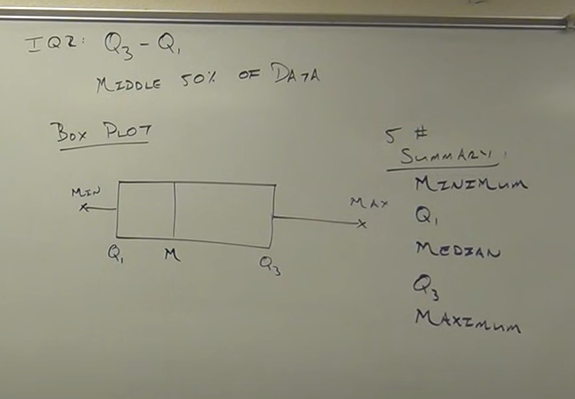 IQR: Q3 - Q1
MIDDLE 50% OF DATA
BOX PLOT
MIN
MAX
Q1 M Q3
5 #
SUMMARY:
MINIMUM
Q1
MEDIAN
Q3
MAXIMUM